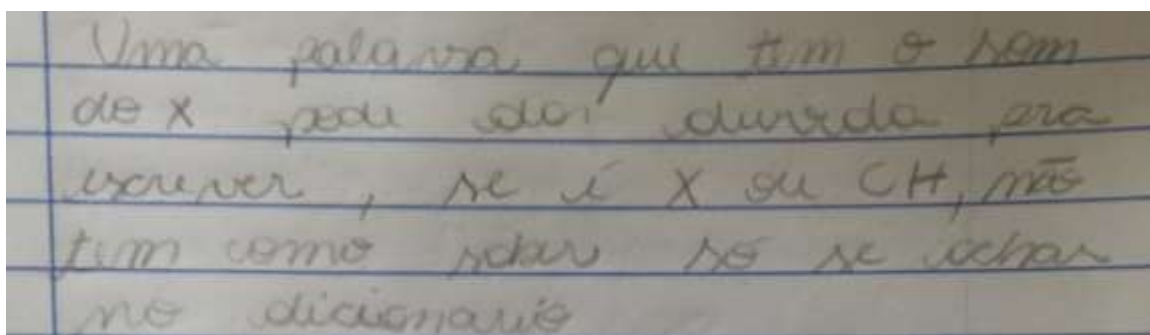 Uma palavra que tem o som
de X pode da duvida pra
escrever, se é X ou CH, não
tem como saber só se achar
no dicionario